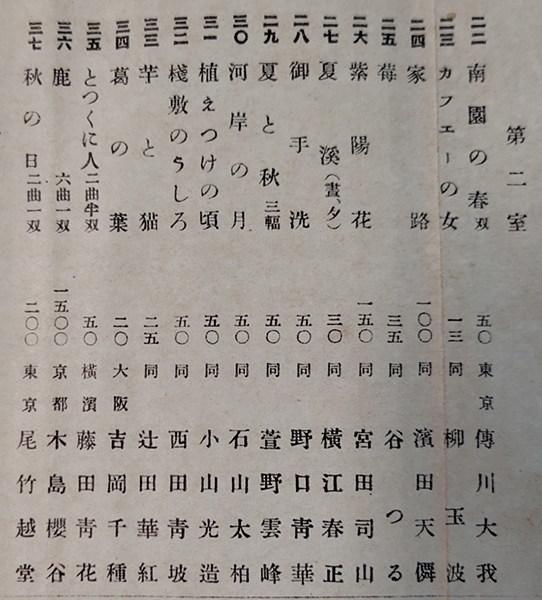 第二室
二二 南園の春 双 五〇 東京 傳川大我
二三 カフエーの女 一三 同 柳玉波
二四 家路 一〇〇 同 濱田天僊
二五 莓 三五 同 谷つる
二六 紫陽花 一五〇 同 宮田司山
二七 夏溪（晝、夕） 三〇 同 橫江春正
二八 御手洗 五〇 同 野口靑華
二九 夏と秋 三幅 五〇 同 萱野雲峰
三〇 河岸の月 五〇 同 石山太柏
三一 植ゑつけの頃 五〇 同 小山光造
三二 棧敷のうしろ 五〇 同 西田靑坡
三三 芋と猫 二五 同 辻田華紅
三四 葛の葉 二〇 大阪 吉岡千種
三五 とつくに人 二曲半双 五〇 橫濱 藤田靑花
三六 鹿 六曲一双 一五〇〇 京都 木島櫻谷
三七 秋の日 二曲一双 二〇〇 東京 尾竹越堂